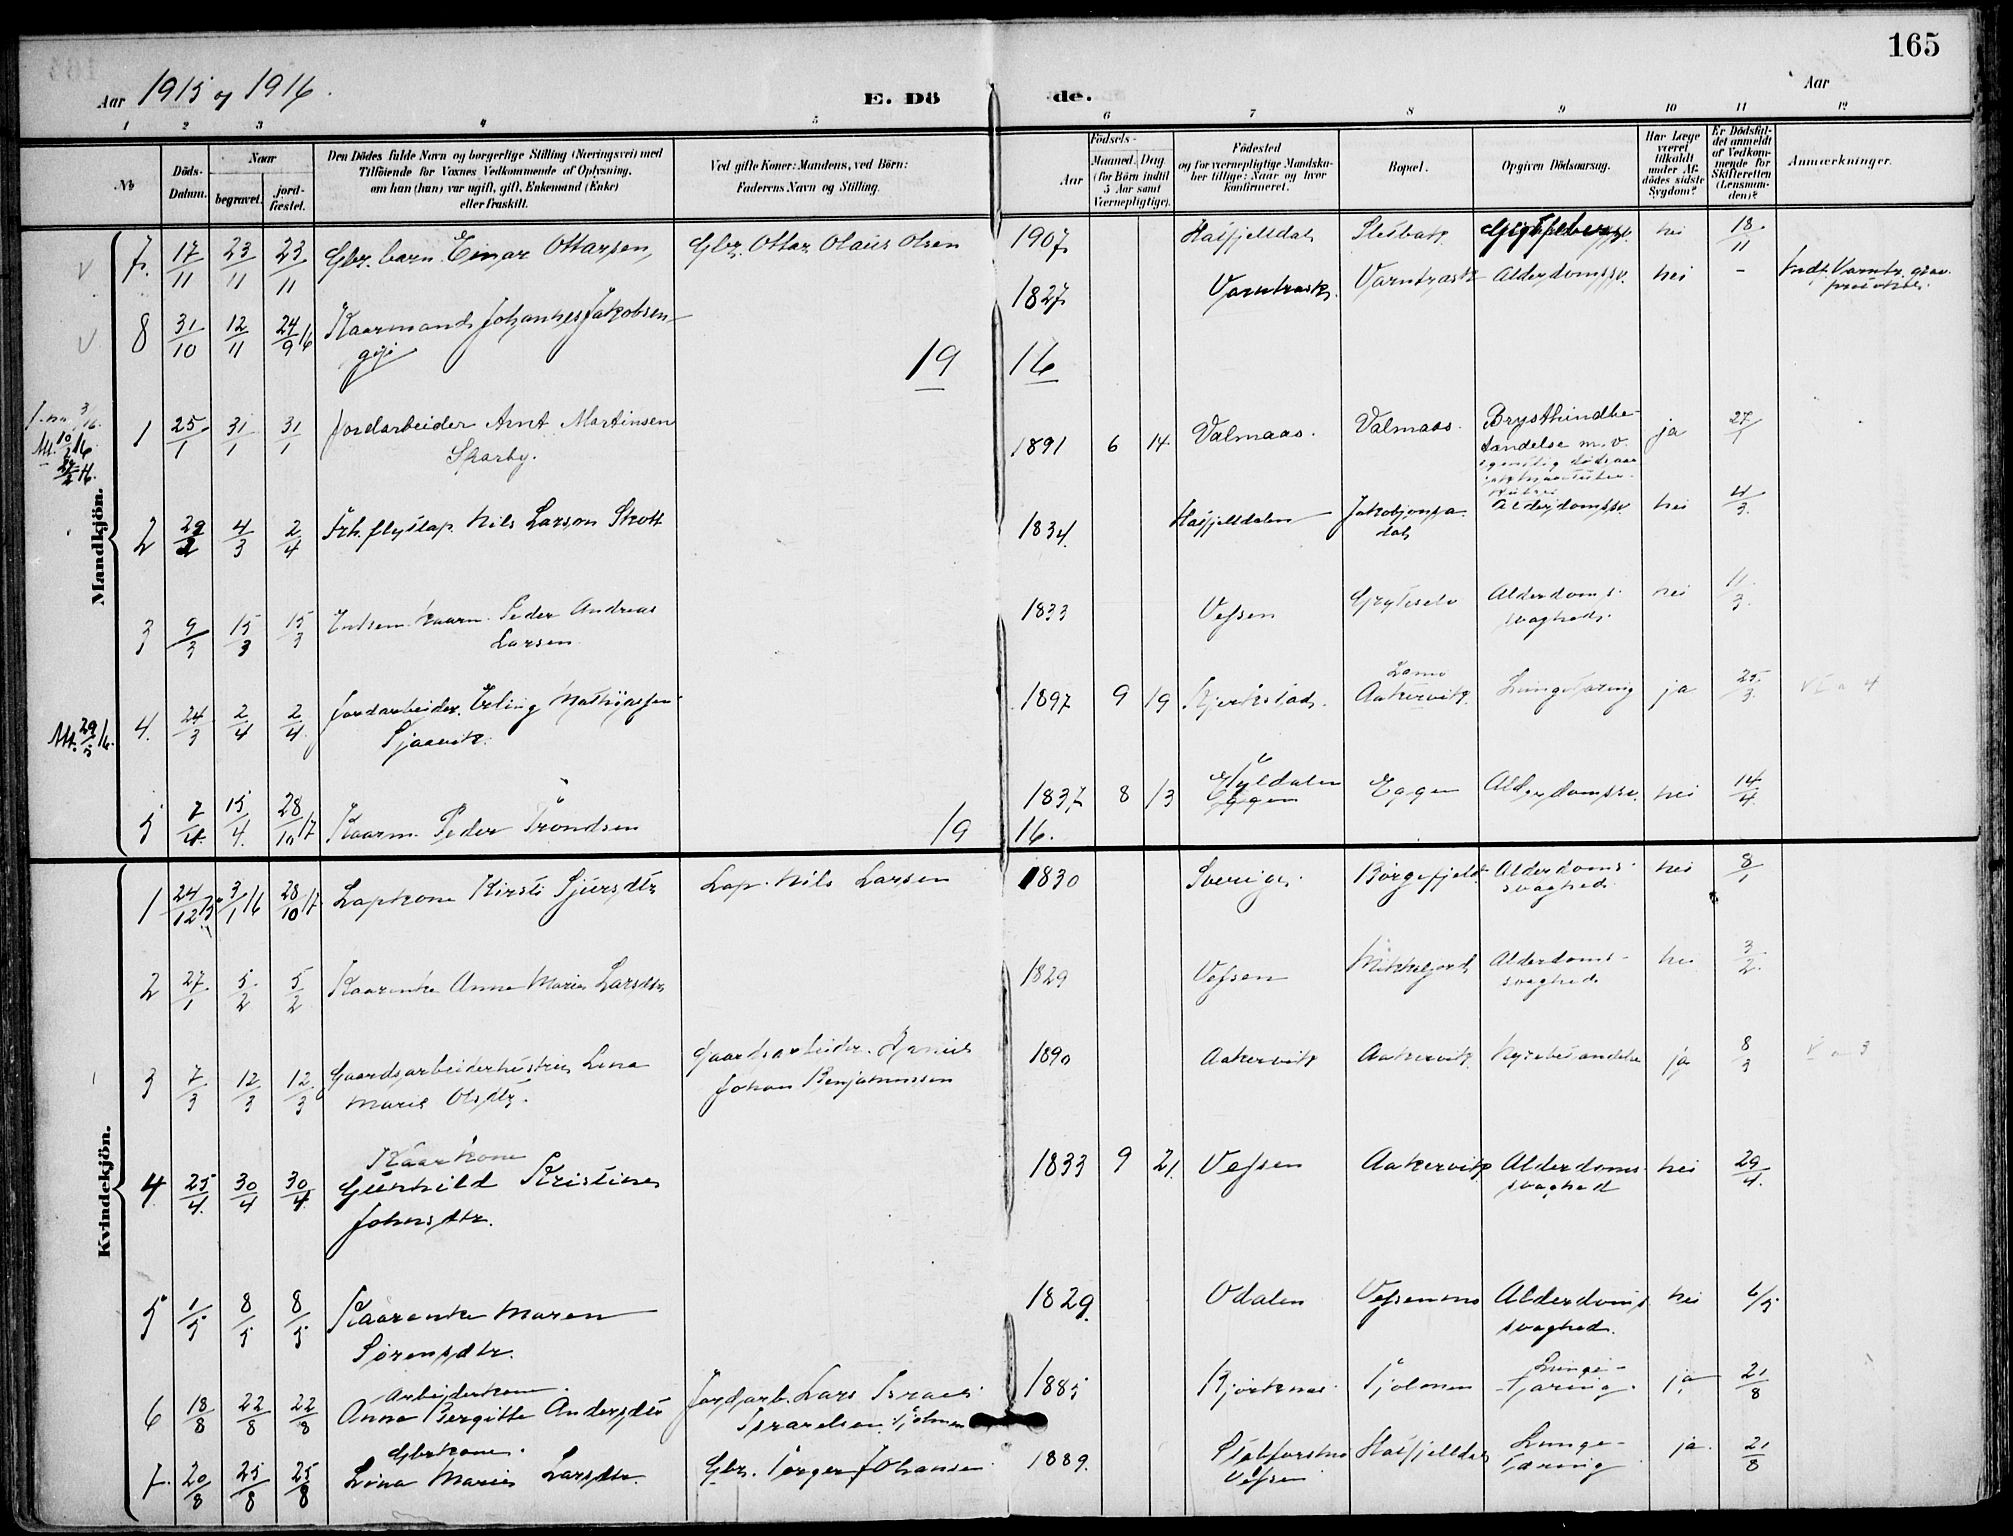 165
Aar 1915 og 1916.
E. Dö de.
Aar
1 2 3 4 5 6 7 8 9 10 11 12
No
Döds-Datum.
Naar
begravet.
jord-fæstet.
Den Dödes fulde Navn og borgerlige Stilling (Næringsvei) med
Tilföiende for Voxnes Vedkommende af Oplysning,
om han (hun) var ugift, gift, Enkemand (Enke)
eller fraskilt.
Ved gifte Koner: Mandens, ved Börn:
Faderens Navn og Stilling.
Födsels-
Aar
Maaned. Dag.
(for Börn indtil
5 Aar samt
Værnepligtige).
Födested
og for værnepligtige Mandska-
ber tillige: Naar og hvor
konfirmeret.
Bopæl.
Opgiven Dödsaarsag.
Har Læge
været
tilkaldt
under Af-
dödes sidste
Sygdom?
Er Dödsfal-
det anmeldt
af Vedkom-
mende for
Skifteretten
(Lensman-
den)?
Anmærkninger.
Mandkjön.
7. 17/11 23/11 23/11 Gbr. barn Einar Ottarsen, Gbr. Ottar Olaus Olsen 1907 Hatfjelldal nei 18/11
8 31/10 12/11 24/9 16 Kaarmand Johannes Jakobsen 1827 Varntræsk Varntræsk Alderdomssv. nei -
19 16
1 25/1 31/1 31/1 Jordarbeider Arnt Martinsen
Skarby. 1891 6 14 Valmaas. Valmaas. Brysthindbe-
tændelse m.v. ja 27/1
2 29/2 4/3 2/4 Frh. flytlap. Nils Larson Skott 1834. Hatfjelldalen Alderdomssv. nei 4/3
3 9/3 15/3 15/3 Enkem. kaarm. Peder Andreas
Larsen 1833 Vefsen Alderdoms-
svaghed. nei 11/3
4. 24/3 2/4 2/4 Jordarbeider. Erling Mathiassen
Sjaavik. 1897 9 19 Aakervik. Lungetæring ja 25/3
5 7/4 15/4 28/10 17 Kaarm. Peder Tröndsen 1837 8 13 Tyldalen
Eggen Eggen Alderdomssv. nei 14/4
19 16.
Kvindekjön.
1 24/12 15 3/1 16 28/10 17 Lapkone Kirsti Sjursdtr Lap. Nils Larsen 1830 Sverige. Börgefjeld Alderdoms-
svaghed nei 8/1
2 27/1 5/2 5/2 Kaarenke Anne Marie Larsdtr 1829 Vefsen Mikkeljord Alderdoms-
svaghed nei 3/2
3 7/3 12/3 12/3 Gaardsarbeiderhustru Lena
Marie Olsdtr. Gaardsarbeider. Daniel
Johan Benjaminsen 1890 Aakervik Aakervik Nyrebetændelse ja 8/3
4 25/4 30/4 30/4 Kaarkone
Gunhild Kristine
Johnsdtr. 1833 9 21. Vefsen Aakervik Alderdoms-
svaghed nei 29/4
5 1/5 8/5 8/5 Kaarenke Maren
Sörensdtr. 1829. Odalen Vefsenmo Alderdoms-
svaghed. nei 6/5
6 18/8 22/8 22/8 Arbeiderkone.
Anna Bergitte Andersdtr Jordarb. Lars Israel
Israelsen, Tjolmen 1885 Björknes Tjolmen Lunge-
tæring. ja 21/8
7. 20/8 25/8 25/8 Gbrkone.
Lina Marie Larsdtr. Gbr. Törger Johansen 1889. Vefsen Hatfjelldal Lunge-
tæring ja. 21/8